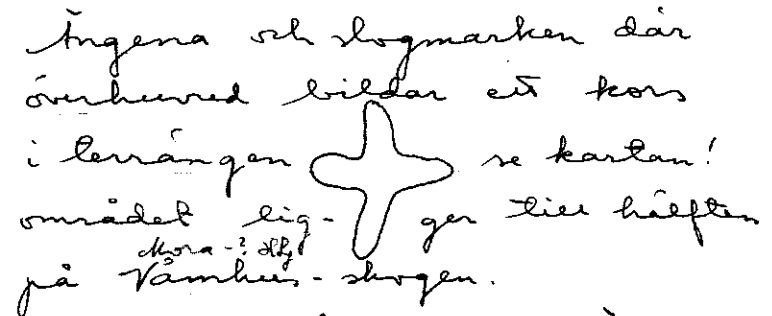 Ängena och slogmarken där
överhuvud bildar ett kors
i terrängen se kartan!
området lig- ger till hälften
Mora-?
på Våmhus-skogen.